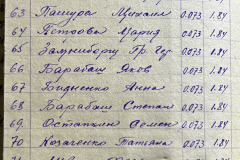 63 Пашура Михаил 0.073 1.84
64 Мария 0.073 1.84
65 0.073 1.84
66 Барабаш Яков 0.073 1.84
67 Бидненко Анна 0.073 1.84
68 Барабаш Степан 0.073 1.84
69 Остапкин Семен 0.073 1.84
70 Козаченко Татьяна 0.073 1.84